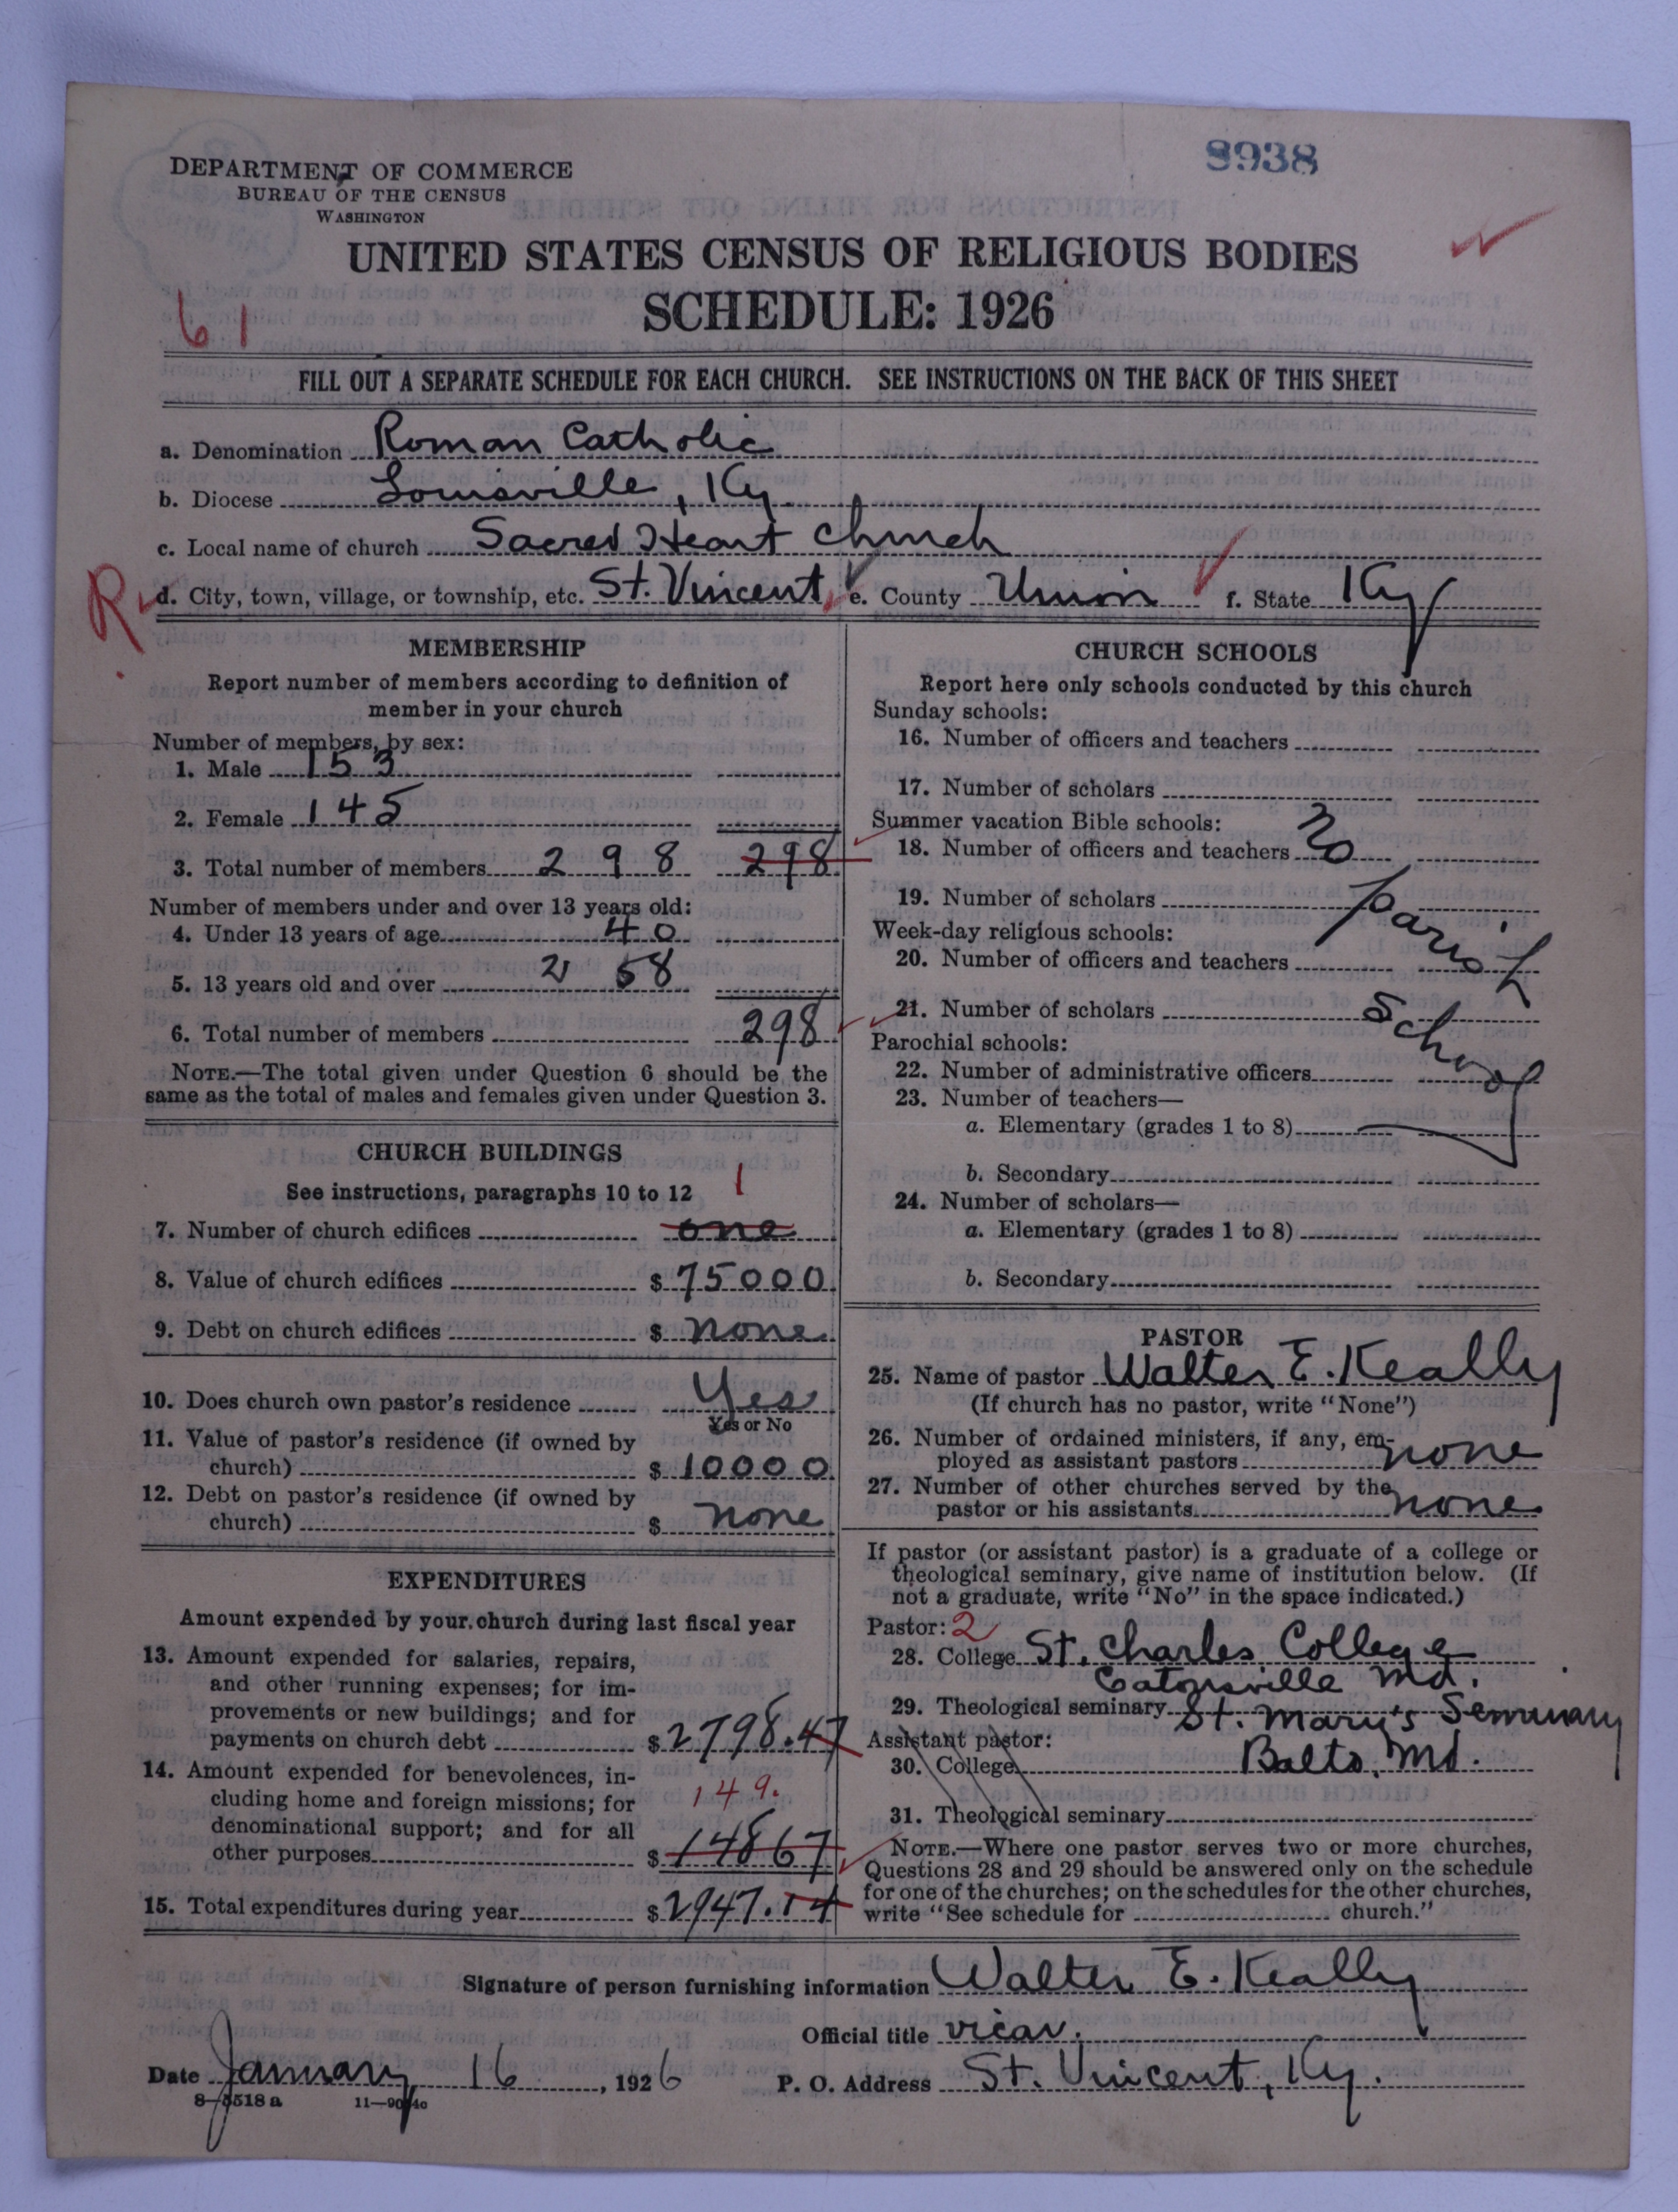 8938
DEPARTMENT OF COMMERCE
BUREAU OF THE CENSUS
WASHINGTON
UNITED STATES CENSUS OF RELIGIOUS BODIES
SCHEDULE: 1926
61
FILL OUT A SEPARATE SCHEDULE FOR EACH CHURCH. SEE INSTRUCTIONS ON THE BACK OF THIS SHEET
a. Denomination Roman Catholic
b. Diocese Louisville, Ky
c. Local name of church Sacred Heart Church
R d. City, town, village, or township, etc. St. Vincent e. County Union f. State Ky
MEMBERSHIP
Report number of members according to definition of
member in your church
Number of members, by sex:
1. Male 153
2. Female 145
3. Total number of members 298 298
Number of members under and over 13 years old:
4. Under 13 years of age 40
5. 13 years old and over 258
6. Total number of members 298
NOTE.—The total given under Question 6 should be the
same as the total of males and females given under Question 3.
CHURCH BUILDINGS
See instructions, paragraphs 10 to 12 1
7. Number of church edifices one
8. Value of church edifices $ 75000
9. Debt on church edifices $ none
10. Does church own pastor's residence Yes
Yes or No
11. Value of pastor's residence (if owned by
church) $ 10000
12. Debt on pastor's residence (if owned by
church) $ none
EXPENDITURES
Amount expended by your church during last fiscal year
13. Amount expended for salaries, repairs,
and other running expenses; for im-
provements or new buildings; and for
payments on church debt $ 2798.47
14. Amount expended for benevolences, in-
cluding home and foreign missions; for 149.
denominational support; and for all
other purposes $ 14867
15. Total expenditures during year $ 2947.14
CHURCH SCHOOLS
Report here only schools conducted by this church
Sunday schools:
16. Number of officers and teachers
17. Number of scholars
Summer vacation Bible schools:
18. Number of officers and teachers No
19. Number of scholars parish
Week-day religious schools:
20. Number of officers and teachers
21. Number of scholars School
Parochial schools:
22. Number of administrative officers
23. Number of teachers—
a. Elementary (grades 1 to 8)
b. Secondary
24. Number of scholars—
a. Elementary (grades 1 to 8)
b. Secondary
PASTOR
25. Name of pastor Walter E. Keally
(If church has no pastor, write "None")
26. Number of ordained ministers, if any, em-
ployed as assistant pastors none
27. Number of other churches served by the
pastor or his assistants none
If pastor (or assistant pastor) is a graduate of a college or
theological seminary, give name of institution below. (If
not a graduate, write "No" in the space indicated.)
Pastor: 2
28. College St. Charles College
Catonsville Md.
29. Theological seminary St. Mary's Seminary
Assistant pastor: Balto. Md.
30. College
31. Theological seminary
NOTE.—Where one pastor serves two or more churches,
Questions 28 and 29 should be answered only on the schedule
for one of the churches; on the schedules for the other churches,
write "See schedule for church."
Signature of person furnishing information Walter E. Keally
Official title vicar.
Date January 16, 1926 P. O. Address St. Vincent, Ky.
8-5518 a